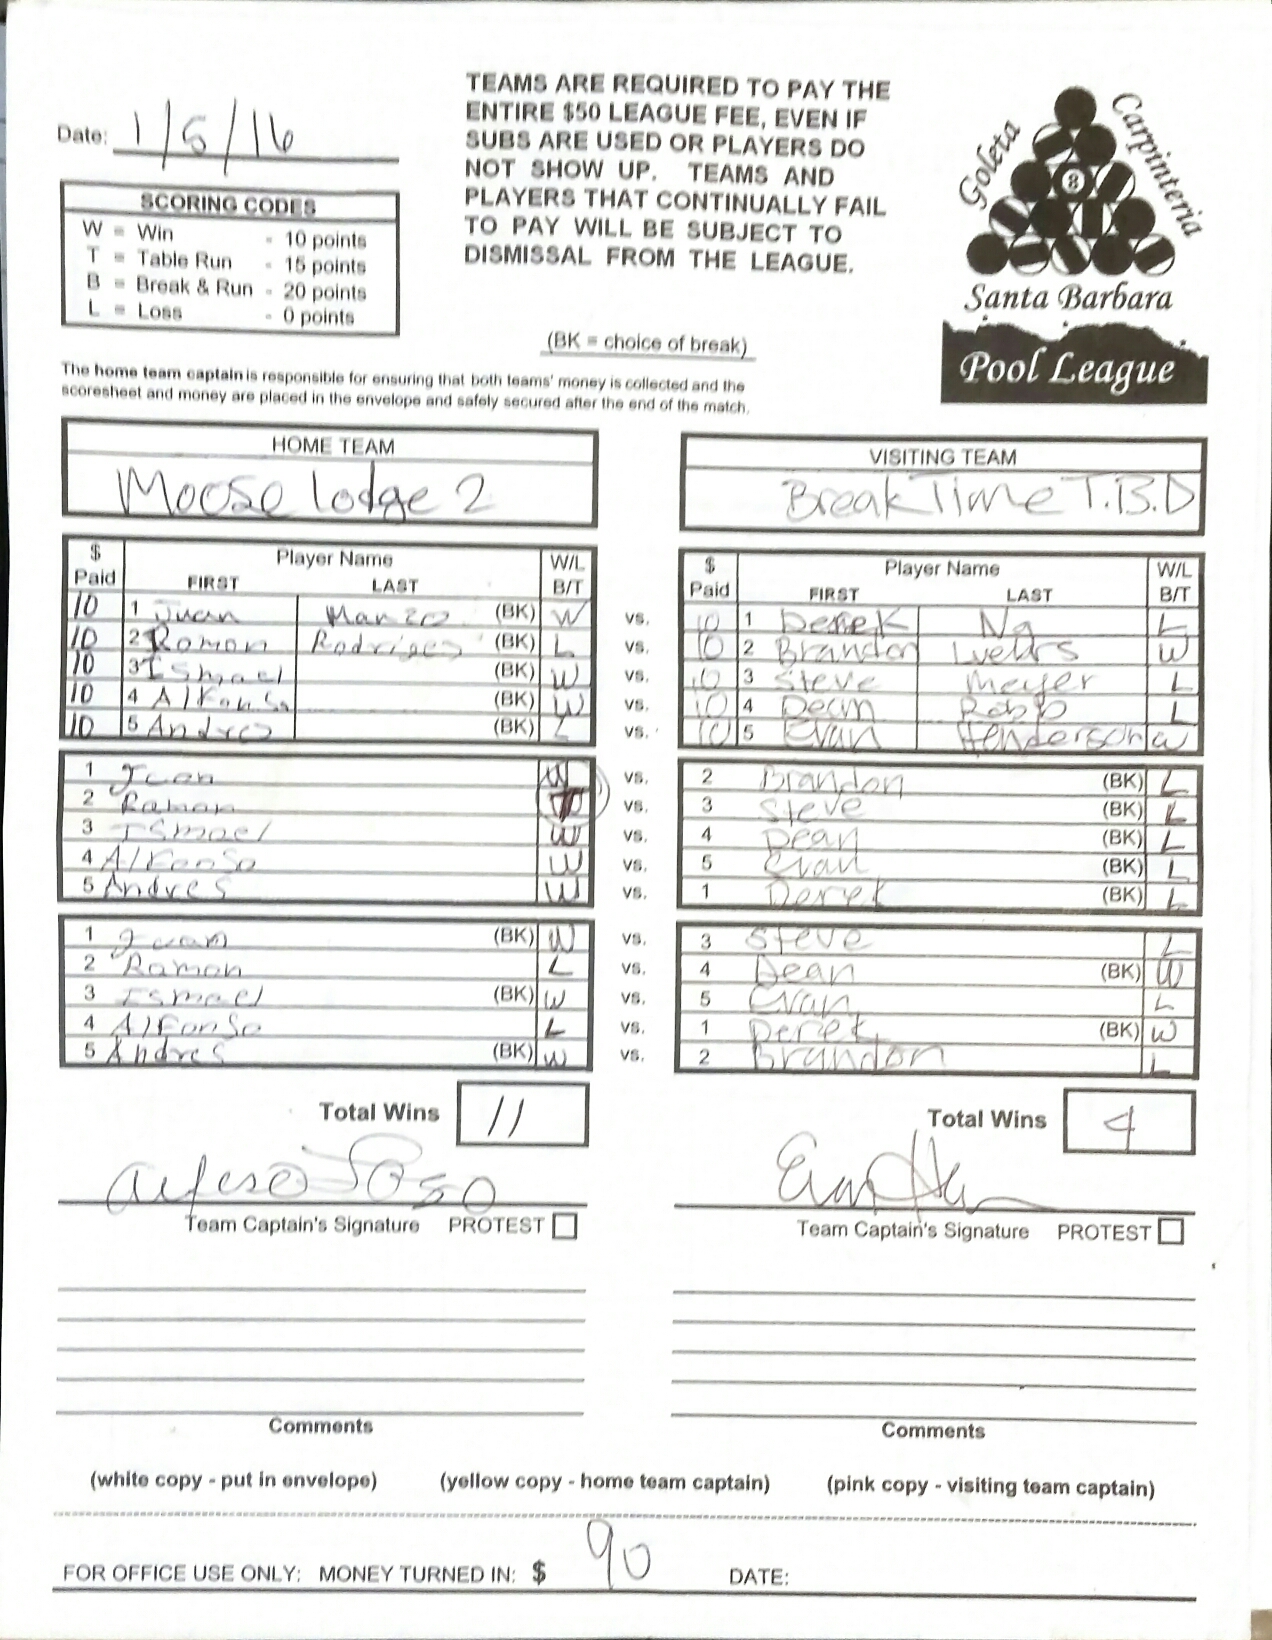 Date: 1/5/16
TEAMS ARE REQUIRED TO PAY THE
ENTIRE $50 LEAGUE FEE, EVEN IF
SUBS ARE USED OR PLAYERS DO
NOT SHOW UP. TEAMS AND
PLAYERS THAT CONTINUALLY FAIL
TO PAY WILL BE SUBJECT TO
DISMISSAL FROM THE LEAGUE.
Goleta
Carpinteria
8
Santa Barbara
Pool League
SCORING CODES
W = Win - 10 points
T = Table Run - 15 points
B = Break & Run - 20 points
L = Loss - 0 points
(BK = choice of break)
The home team captain is responsible for ensuring that both teams' money is collected and the
scoresheet and money are placed in the envelope and safely secured after the end of the match.
HOME TEAM
Moose lodge 2
VISITING TEAM
Break Time T.B.D
$ Paid Player Name FIRST LAST W/L B/T
$ Paid Player Name FIRST LAST W/L B/T
10 1 Juan Manzo (BK) W vs. 10 1 Derek Ng L
10 2 Ramon Rodriges (BK) L vs. 10 2 Brandon Luehrs W
10 3 Ismael (BK) W vs. 10 3 Steve Meyer L
10 4 Alfonso (BK) W vs. 10 4 Dean Robb L
10 5 Andres (BK) L vs. 10 5 Evan Henderson W
1 Juan W vs. 2 Brandon (BK) L
2 Ramon T vs. 3 Steve (BK) L
3 Ismael W vs. 4 Dean (BK) L
4 Alfonso W vs. 5 Evan (BK) L
5 Andres W vs. 1 Derek (BK) L
1 Juan (BK) W vs. 3 Steve L
2 Ramon L vs. 4 Dean (BK) W
3 Ismael (BK) W vs. 5 Evan L
4 Alfonso L vs. 1 Derek (BK) W
5 Andres (BK) W vs. 2 Brandon L
Total Wins 11
Total Wins 4
Team Captain's Signature PROTEST
Team Captain's Signature PROTEST
Comments
Comments
(white copy - put in envelope) (yellow copy - home team captain) (pink copy - visiting team captain)
FOR OFFICE USE ONLY: MONEY TURNED IN: $ 90 DATE: